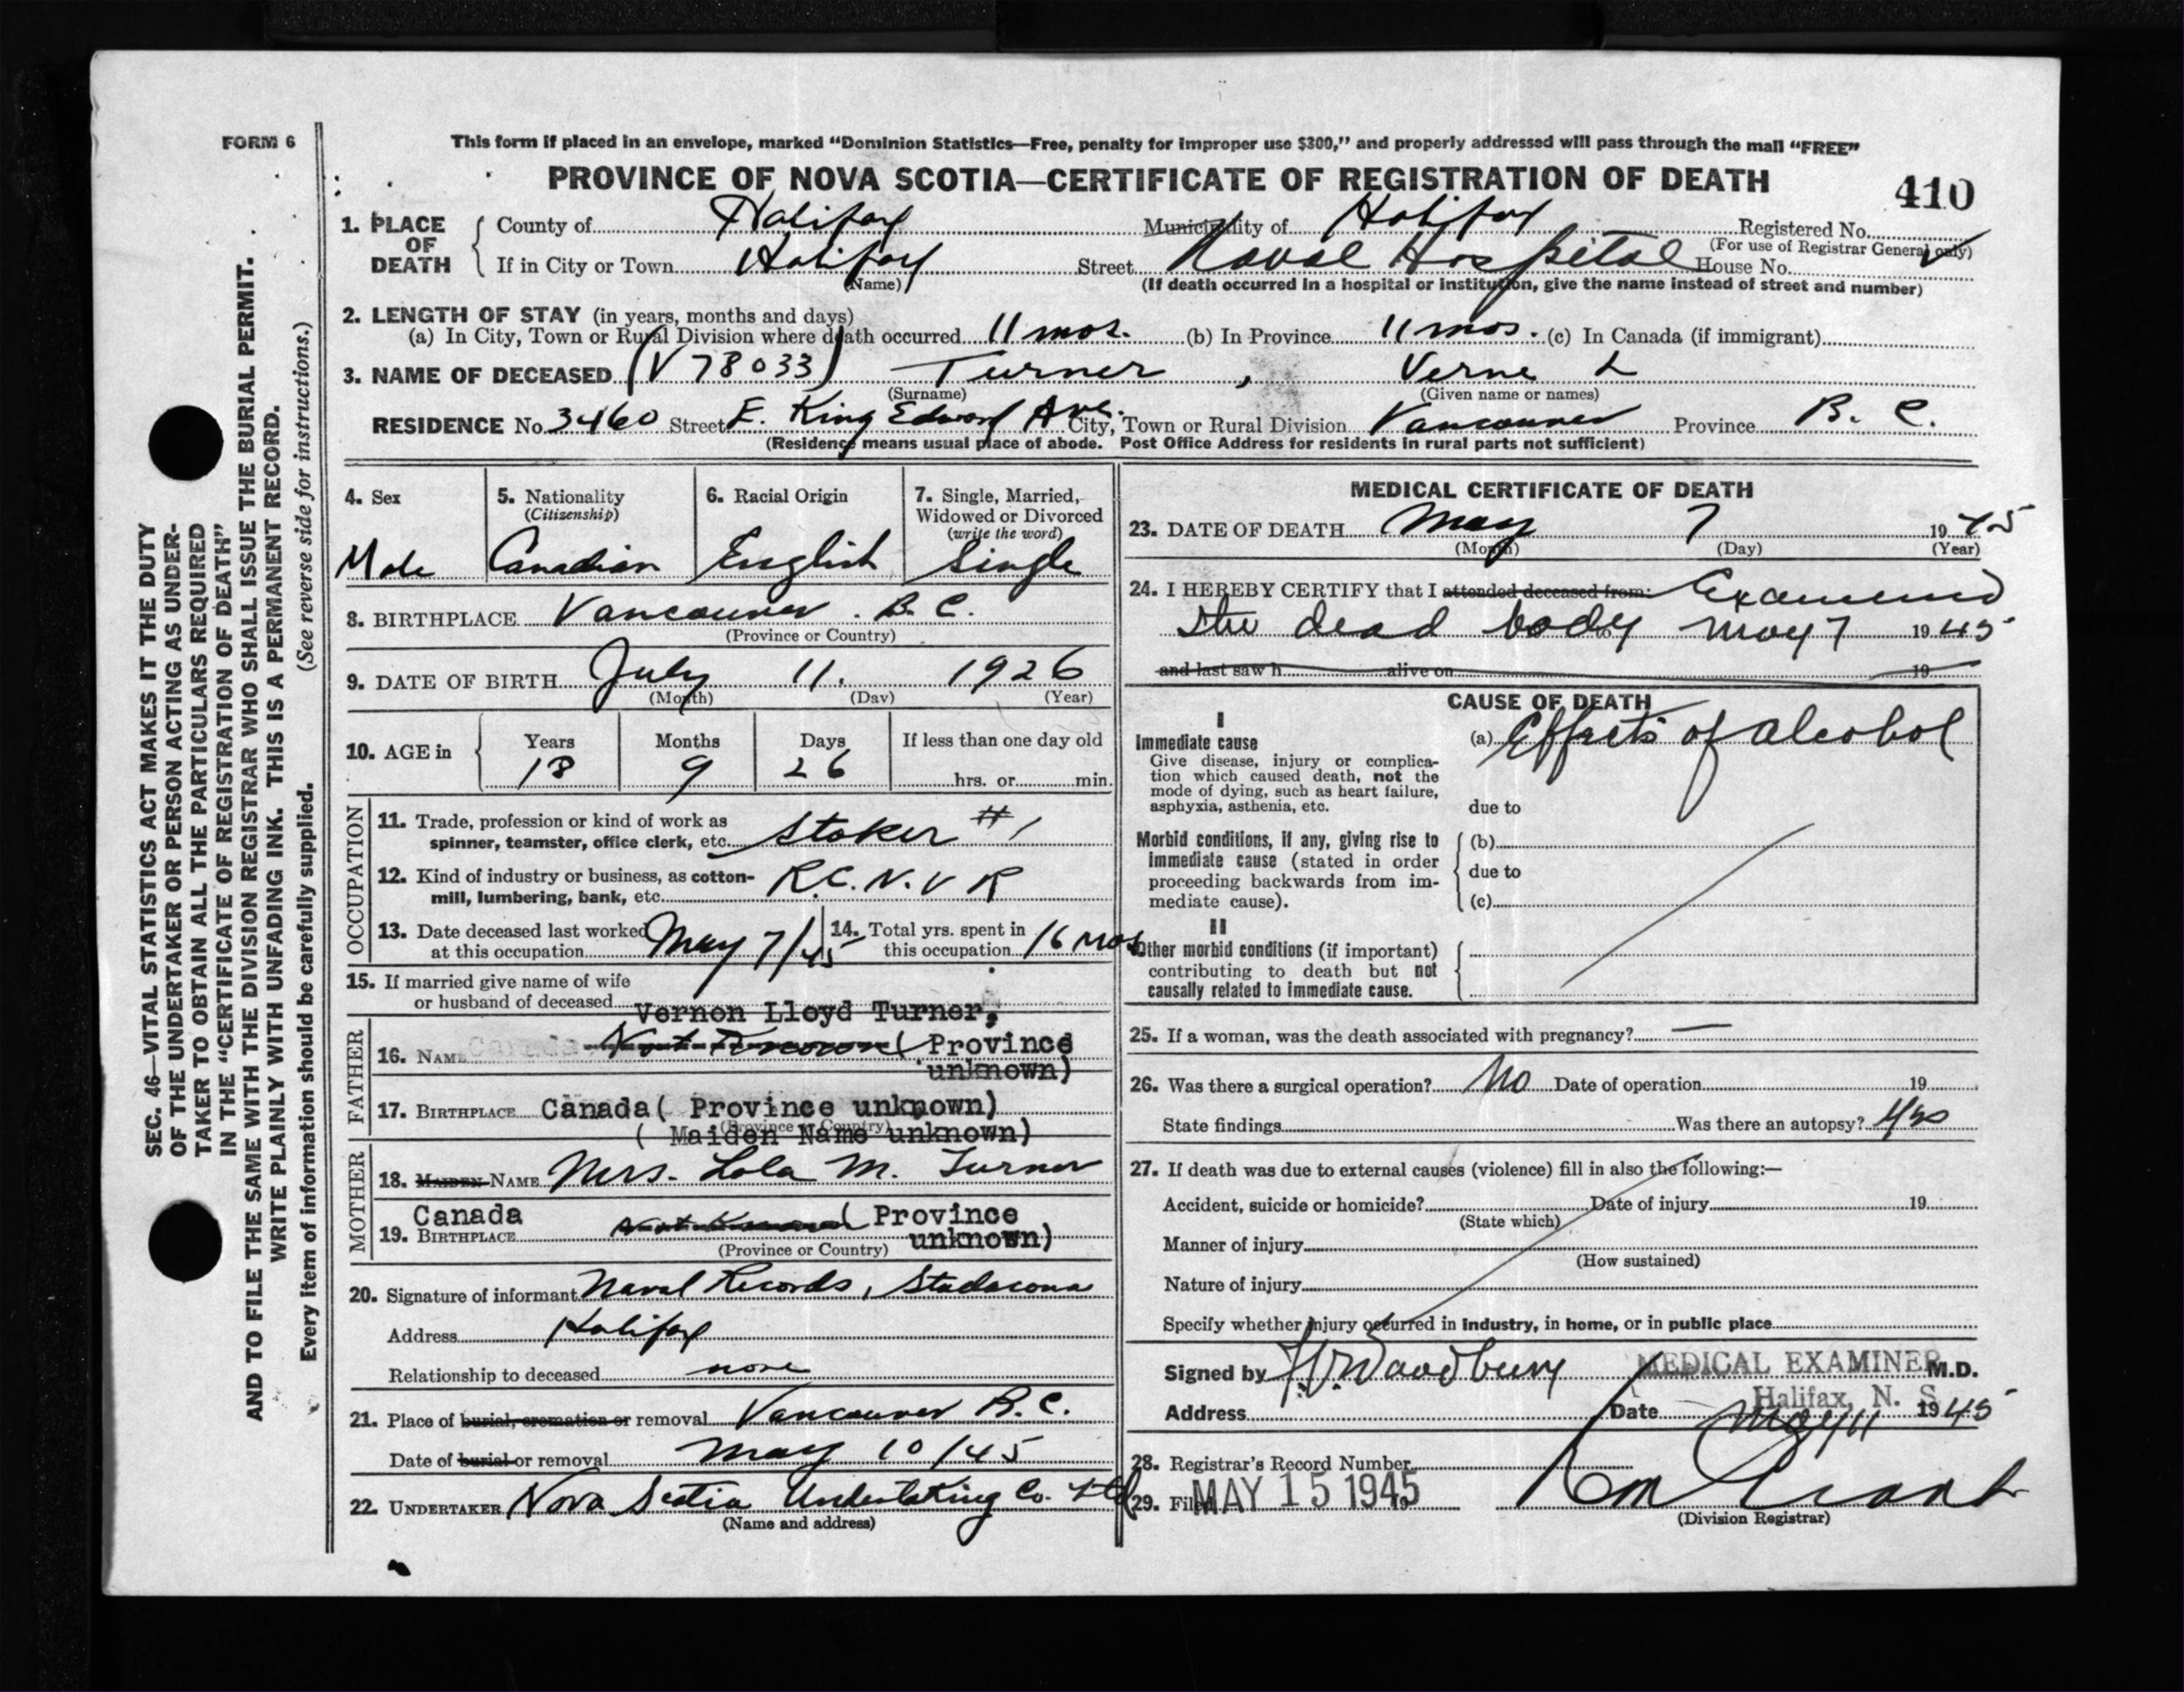 FORM 6
This form if placed in an envelope, marked "Dominion Statistics—Free, penalty for improper use $300," and properly addressed will pass through the mail "FREE"
PROVINCE OF NOVA SCOTIA—CERTIFICATE OF REGISTRATION OF DEATH
410
1. PLACE OF DEATH
County of Halifax Municipality of Halifax Registered No.
(For use of Registrar General only)
If in City or Town Halifax Street Naval Hospital House No.
(Name) (If death occurred in a hospital or institution, give the name instead of street and number)
2. LENGTH OF STAY (in years, months and days)
(a) In City, Town or Rural Division where death occurred 11 mos. (b) In Province 11 mos. (c) In Canada (if immigrant)
3. NAME OF DECEASED (V 78033) Turner , Verne L
(Surname) (Given name or names)
RESIDENCE No. 3460 Street E. King Edward Ave. City, Town or Rural Division Vancouver Province B. C.
(Residence means usual place of abode. Post Office Address for residents in rural parts not sufficient)
4. Sex
Male
5. Nationality
(Citizenship)
Canadian
6. Racial Origin
English
7. Single, Married,
Widowed or Divorced
(write the word)
Single
8. BIRTHPLACE Vancouver. B. C.
(Province or Country)
9. DATE OF BIRTH July 11. 1926
(Month) (Day) (Year)
10. AGE in
Years Months Days If less than one day old
18 9 26 hrs. or min.
OCCUPATION
11. Trade, profession or kind of work as
spinner, teamster, office clerk, etc. Stoker #1
12. Kind of industry or business, as cotton-
mill, lumbering, bank, etc. R.C.N.V R
13. Date deceased last worked
at this occupation May 7/45
14. Total yrs. spent in
this occupation 16 mos
15. If married give name of wife
or husband of deceased
FATHER
Vernon Lloyd Turner,
16. NAME Canada Not Known ( Province
unknown)
17. BIRTHPLACE Canada ( Province unknown)
(Province or Country)
( Maiden Name unknown)
MOTHER
18. MAIDEN NAME Mrs. Lola M. Turner
Canada
19. BIRTHPLACE Not Known ( Province
unknown)
(Province or Country)
20. Signature of informant Naval Records, Stadacona
Address Halifax
Relationship to deceased none
21. Place of burial, cremation or removal Vancouver B.C.
Date of burial or removal May 10/45
22. UNDERTAKER Nova Scotia Undertaking Co. Ltd
(Name and address)
MEDICAL CERTIFICATE OF DEATH
23. DATE OF DEATH May 7 1945
(Month) (Day) (Year)
24. I HEREBY CERTIFY that I attended deceased from: Examined
the dead body to May 7 1945
and last saw h alive on 19
CAUSE OF DEATH
I
Immediate cause
Give disease, injury or complica-
tion which caused death, not the
mode of dying, such as heart failure,
asphyxia, asthenia, etc.
(a) Effects of alcohol
due to
Morbid conditions, if any, giving rise to
immediate cause (stated in order
proceeding backwards from im-
mediate cause).
(b)
due to
(c)
II
Other morbid conditions (if important)
contributing to death but not
causally related to immediate cause.
25. If a woman, was the death associated with pregnancy? —
26. Was there a surgical operation? No Date of operation 19
State findings Was there an autopsy? Yes
27. If death was due to external causes (violence) fill in also the following:—
Accident, suicide or homicide? Date of injury 19
(State which)
Manner of injury
(How sustained)
Nature of injury
Specify whether injury occurred in industry, in home, or in public place
Signed by Woodbury MEDICAL EXAMINER M.D.
Halifax, N. S.
Address Date May 11 1945
28. Registrar's Record Number
29. Filed MAY 15 1945
Grant
(Division Registrar)
SEC. 46—VITAL STATISTICS ACT MAKES IT THE DUTY
OF THE UNDERTAKER OR PERSON ACTING AS UNDER-
TAKER TO OBTAIN ALL THE PARTICULARS REQUIRED
IN THE "CERTIFICATE OF REGISTRATION OF DEATH"
AND TO FILE THE SAME WITH THE DIVISION REGISTRAR WHO SHALL ISSUE THE BURIAL PERMIT.
WRITE PLAINLY WITH UNFADING INK. THIS IS A PERMANENT RECORD.
Every item of information should be carefully supplied. (See reverse side for instructions.)